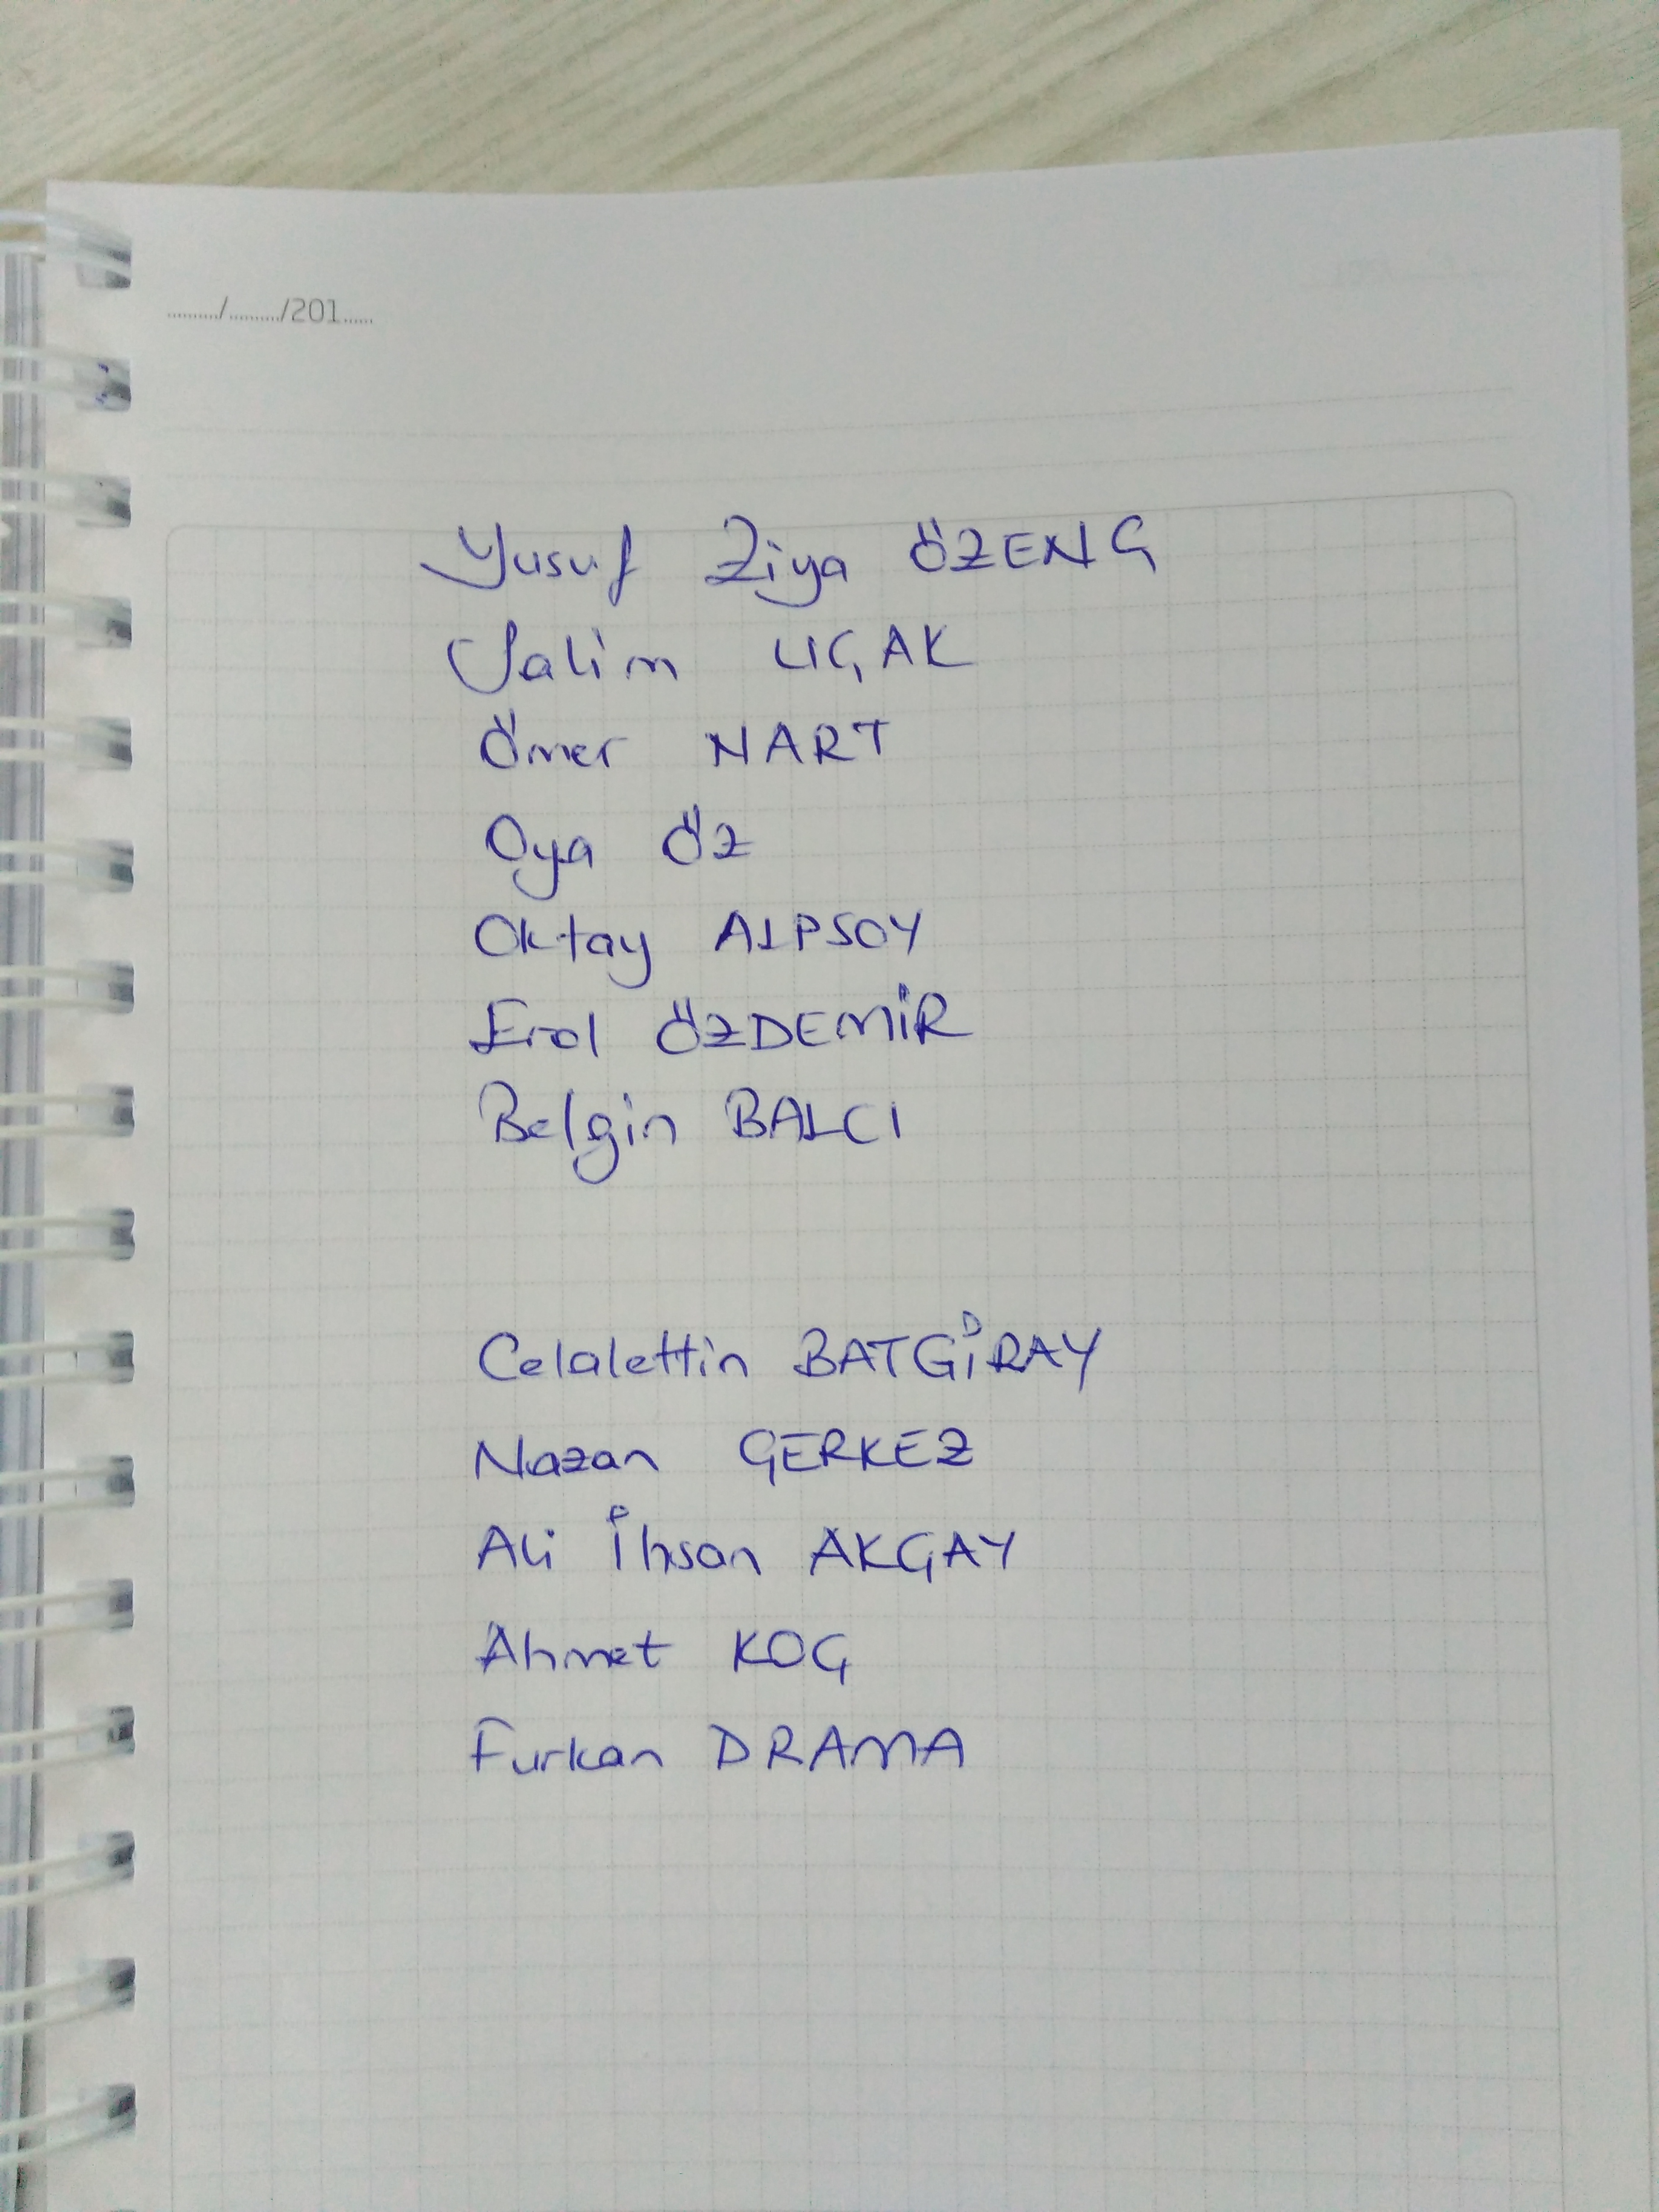 ....../....../201......
Yusuf Ziya ÖZENÇ
Salim UÇAK
Ömer NART
Oya ÖZ
Oktay ALPSOY
Erol ÖZDEMİR
Belgin BALCI
Celalettin BATGİRAY
Nazan ÇERKEZ
Ali İhsan AKÇAY
Ahmet KOÇ
Furkan DRAMA